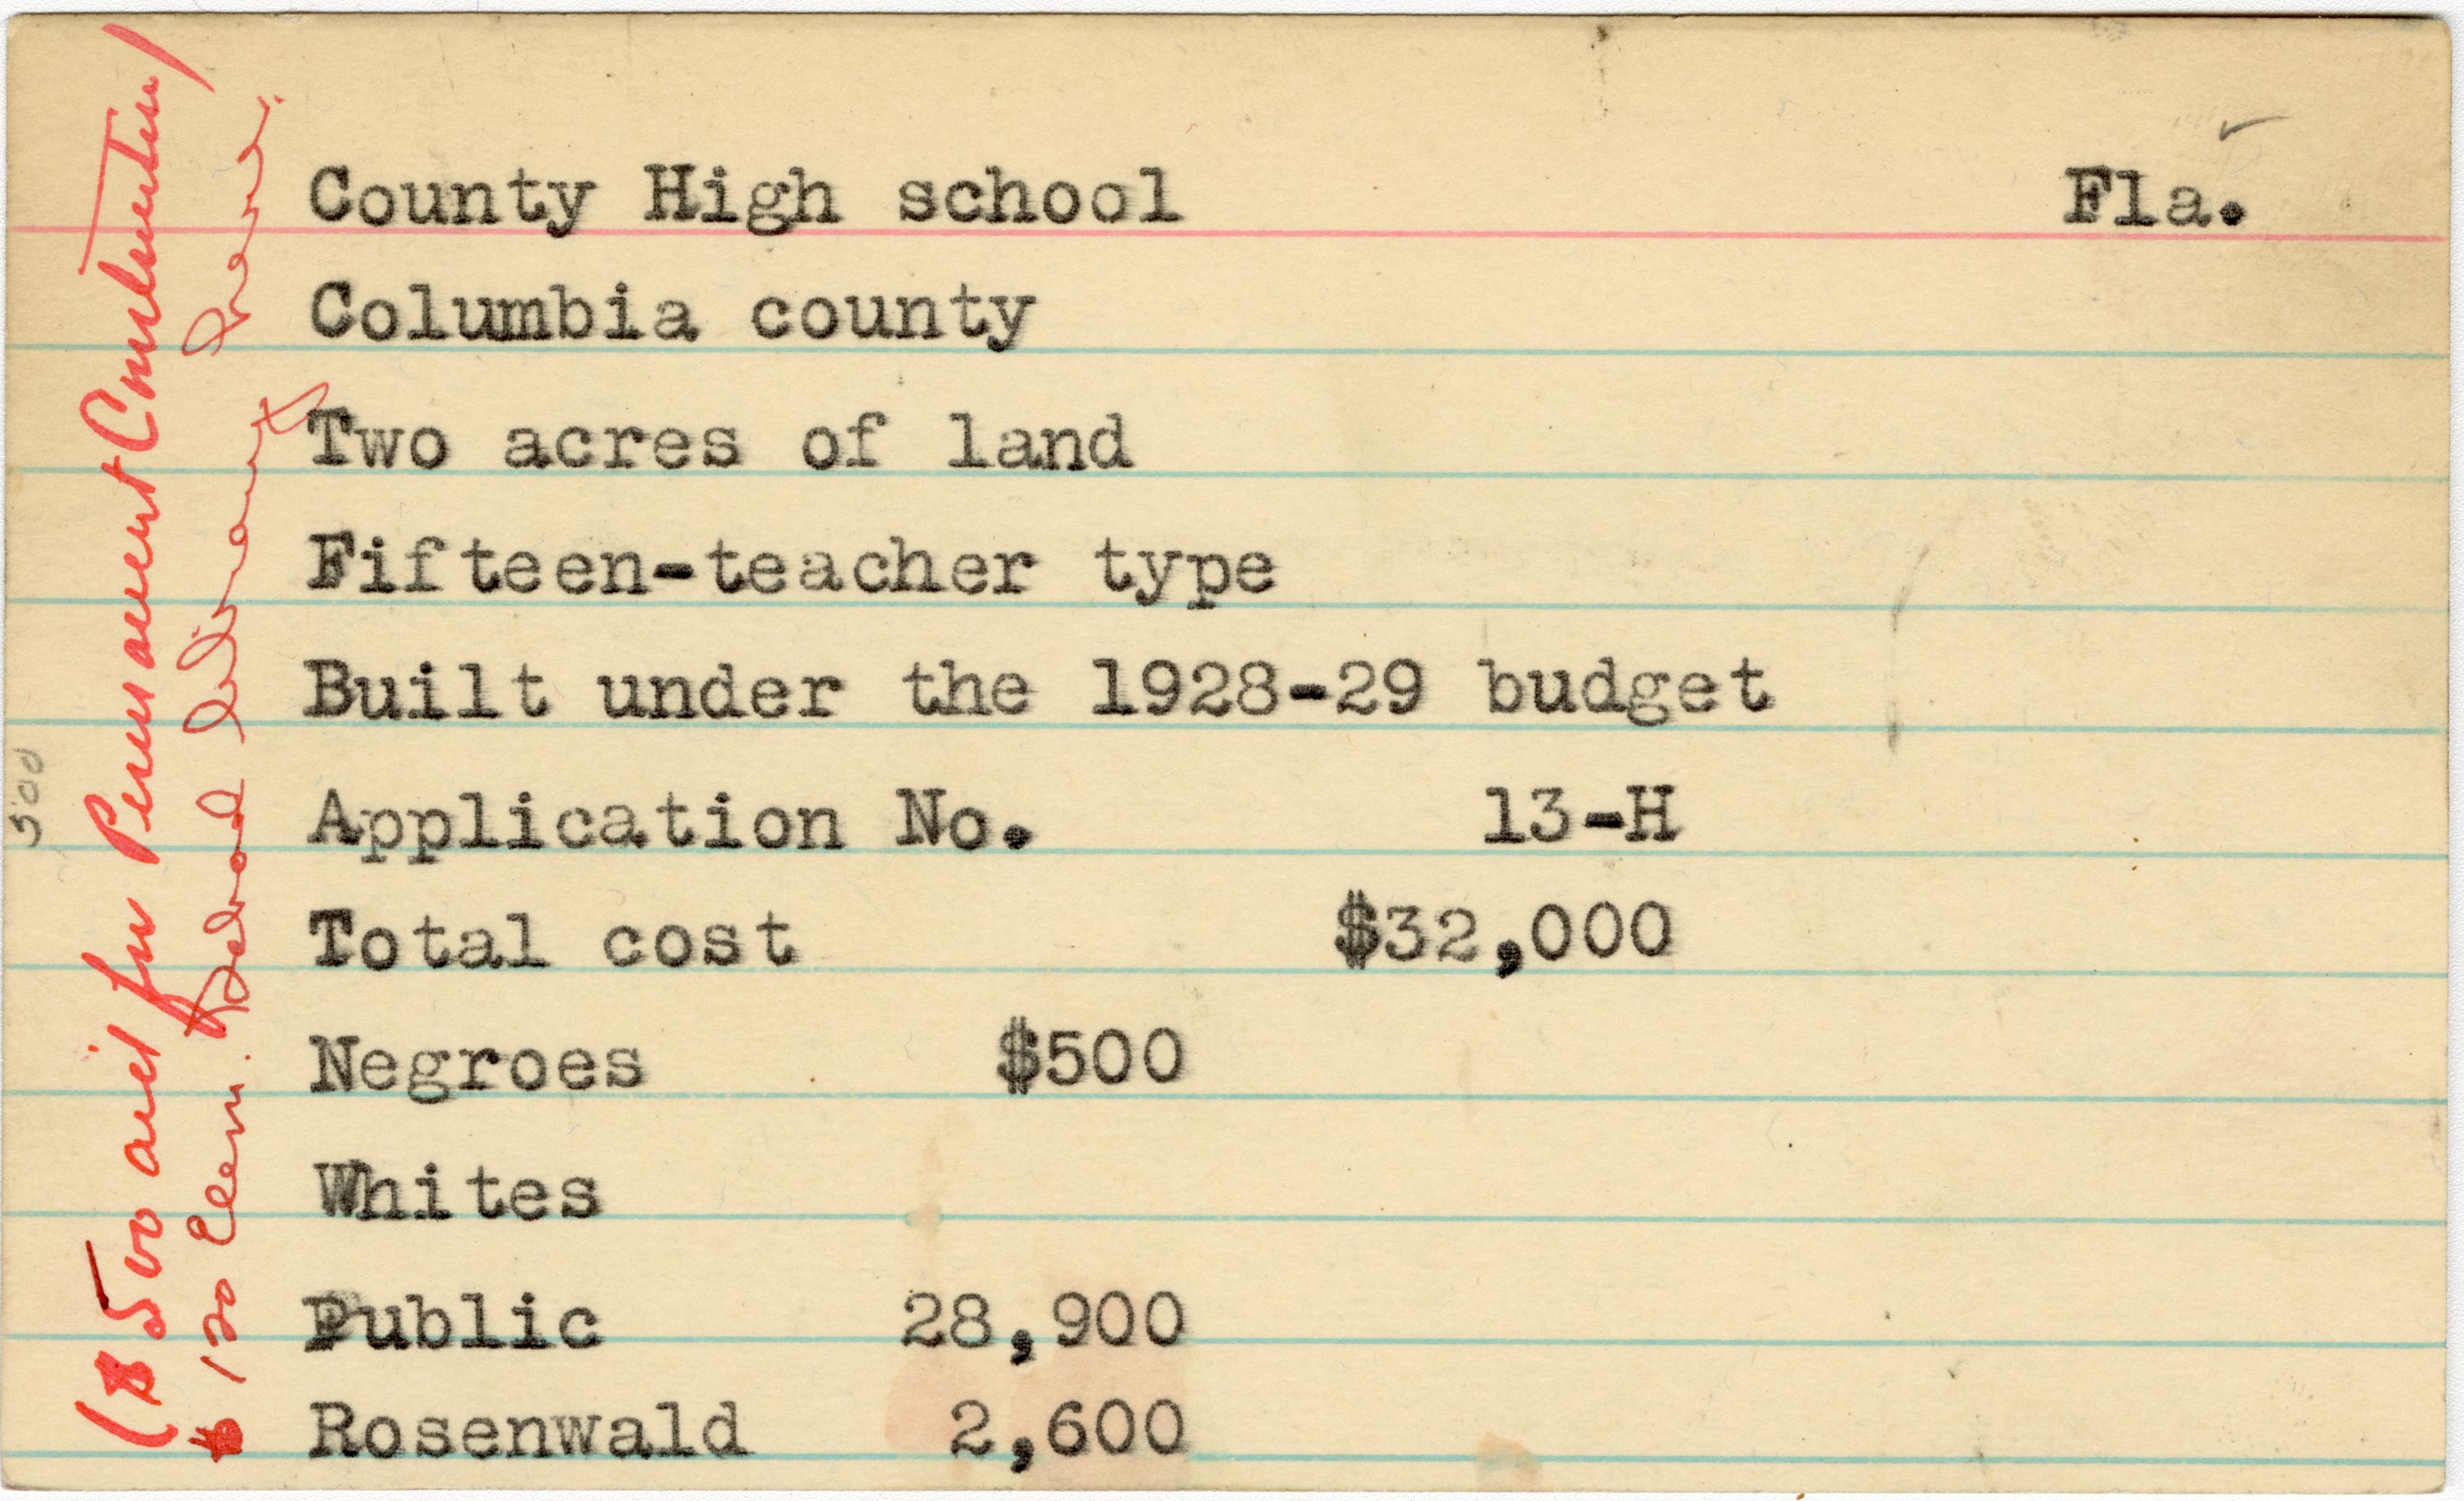 County High school Fla.
Columbia county
Two acres of land
Fifteen-teacher type
Built under the 1928-29 budget
Application No. 13-H
Total cost $32,000
Negroes $500
Whites
Public 28,900
Rosenwald 2,600
($500 aid for Permanent Construction)
$120 Elem. School Library
500